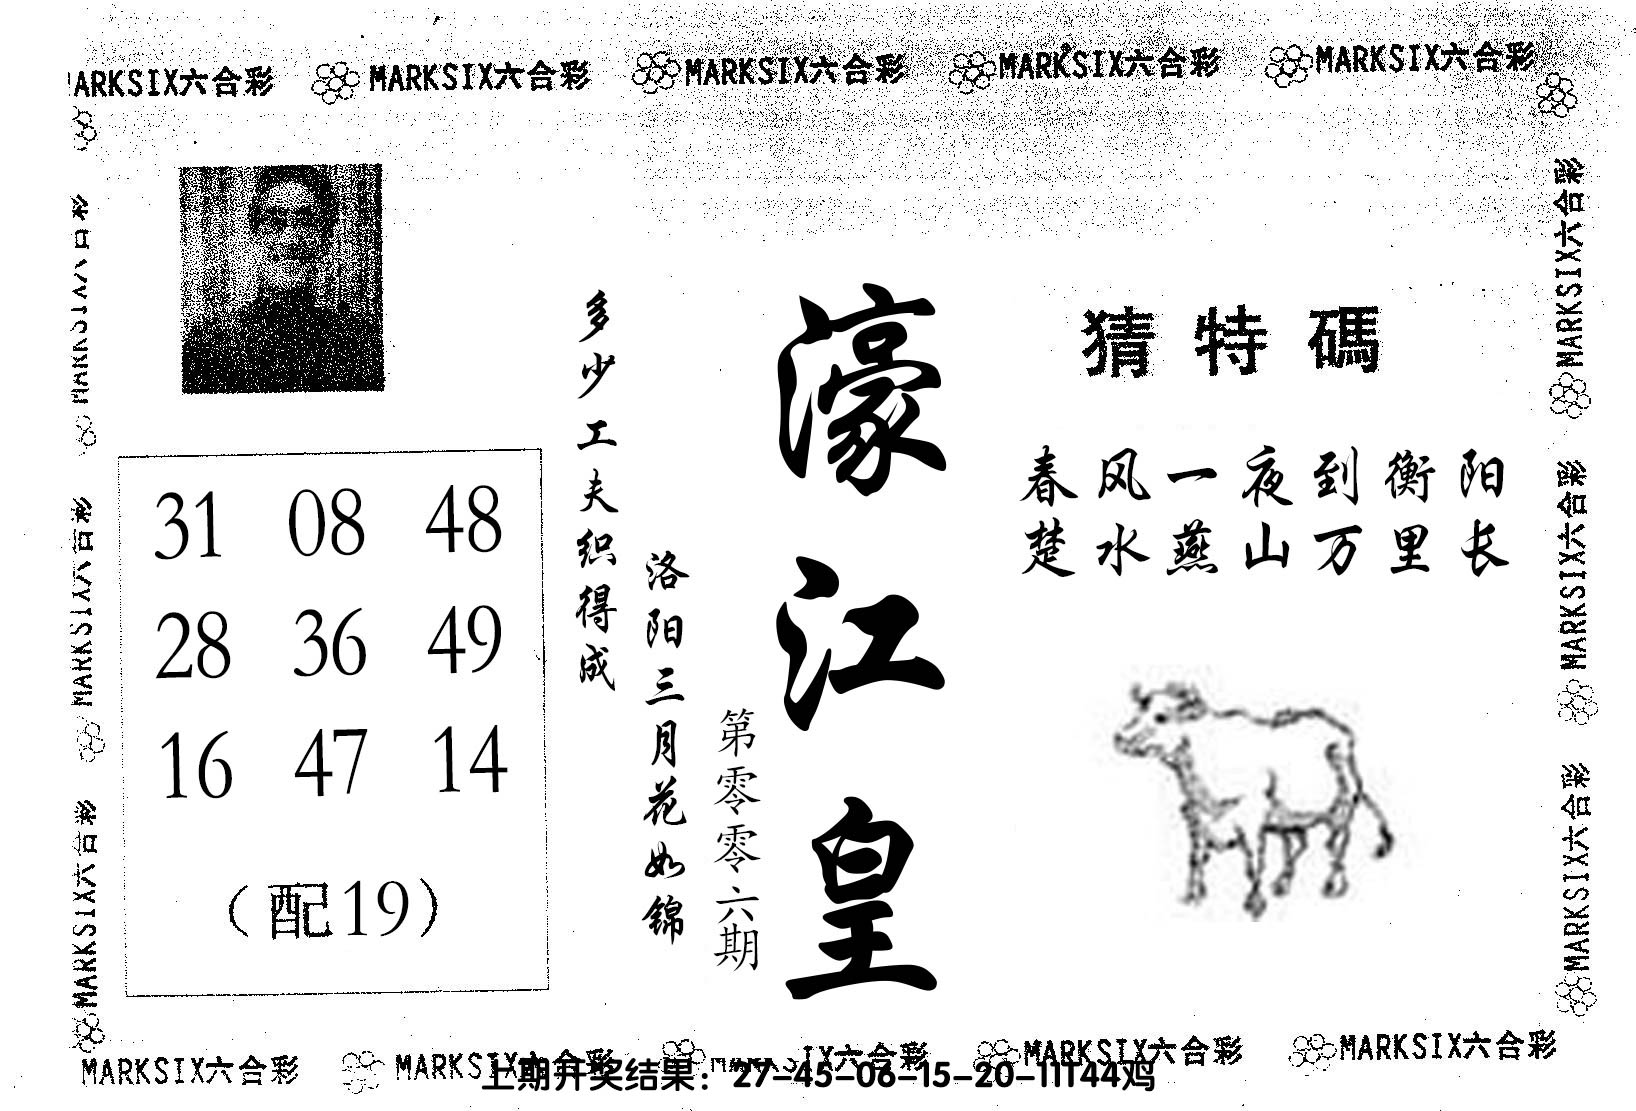 MARKSIX六合彩 MARKSIX六合彩 MARKSIX六合彩 MARKSIX六合彩 MARKSIX六合彩
猜特碼
春风一夜到衡阳
楚水燕山万里长
濠江皇
第零零六期
洛阳三月花如锦
多少工夫织得成
31 08 48
28 36 49
16 47 14
（配19）
MARKSIX六合彩
MARKSIX六合彩
MARKSIX六合彩
MARKSIX六合彩
MARKSIX六合彩
MARKSIX六合彩
MARKSIX六合彩 MARKSIX六合彩 MARKSIX六合彩 MARKSIX六合彩 MARKSIX六合彩
上期开奖结果：27-45-06-15-20-11T44鸡